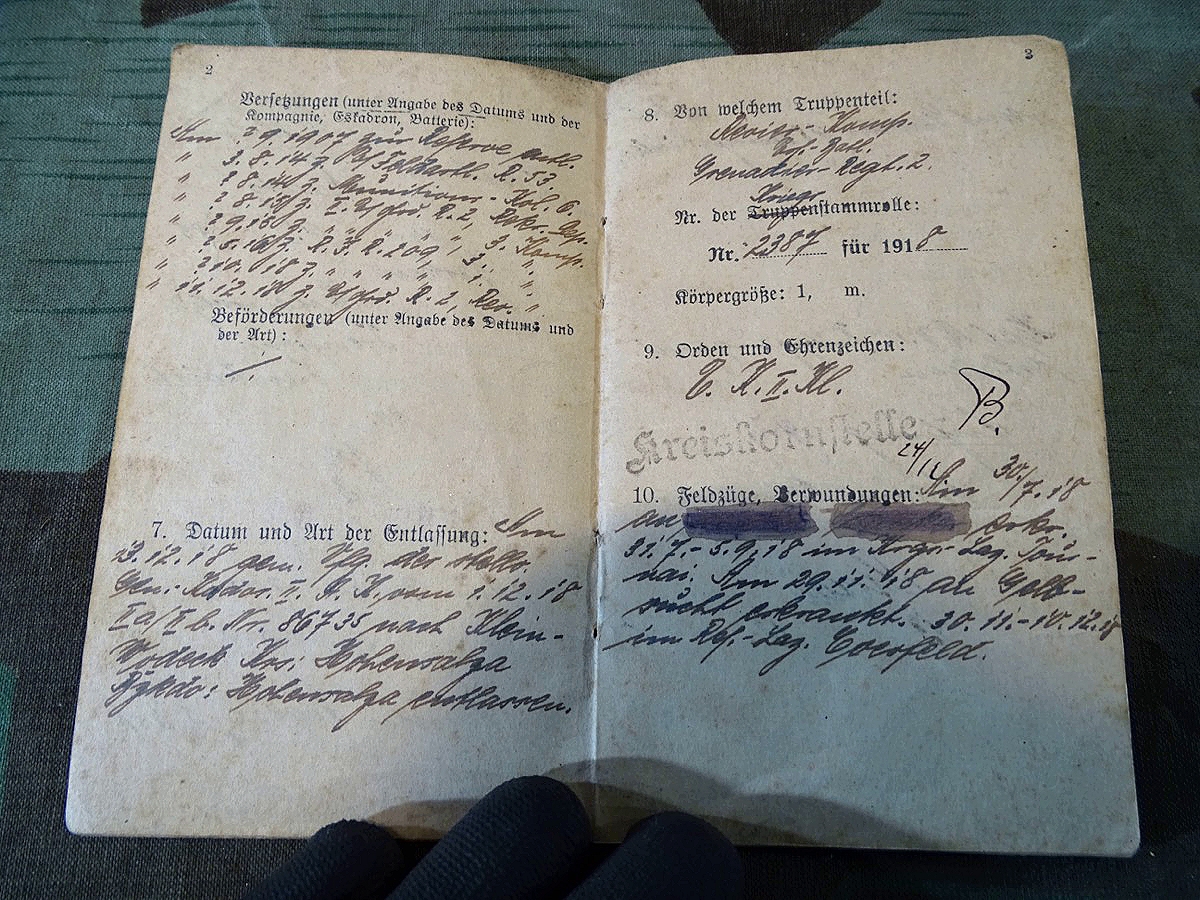 2
Versetzungen (unter Angabe des Datums und der
Kompagnie, Eskadron, Batterie):
Am 29.1907 zur Reserve entl.
" 3.8.14 z. Feldartl. R. 53
" 28.14 z. Munitions-Kol. 6.
" 2.8.15 z. R. 2, Rekr. Dep.
" 29.16 z. " 3. Komp.
" 25.16 z. R. J. R. 209, " 3. "
" 2.10.18 z. " " " " 1. "
" 11.12.18 z. R. 2, Rev. "
Beförderungen (unter Angabe des Datums und
der Art):
7. Datum und Art der Entlassung: Am
13.12.18 gem. Vfg. des stellv.
Gen. Kdos. II. A. K. vom 1.12.18
Ia/IIb. Nr. 86735 nach Klein-
Wodeck Krs. Hohensalza
Hohensalza entlassen.
3
8. Von welchem Truppenteil:
Revier-Komp.
Ers. Batl.
Grenadier-Regt. 2.
Kriegs
Nr. der Truppenstammrolle:
Nr. 2387 für 1918
Körpergröße: 1, m.
9. Orden und Ehrenzeichen:
E. K. II. Kl.
B.
Kreiskornstelle
24/12
10. Feldzüge, Verwundungen: Am 30/7.18
an erkr.
31.7.-5.9.18 im Krgs. Laz. Tour-
nai. Am 29.11.18 an Gelb-
sucht erkrankt. 30.11.-10.12.18
im Res. Laz. Coesfeld.